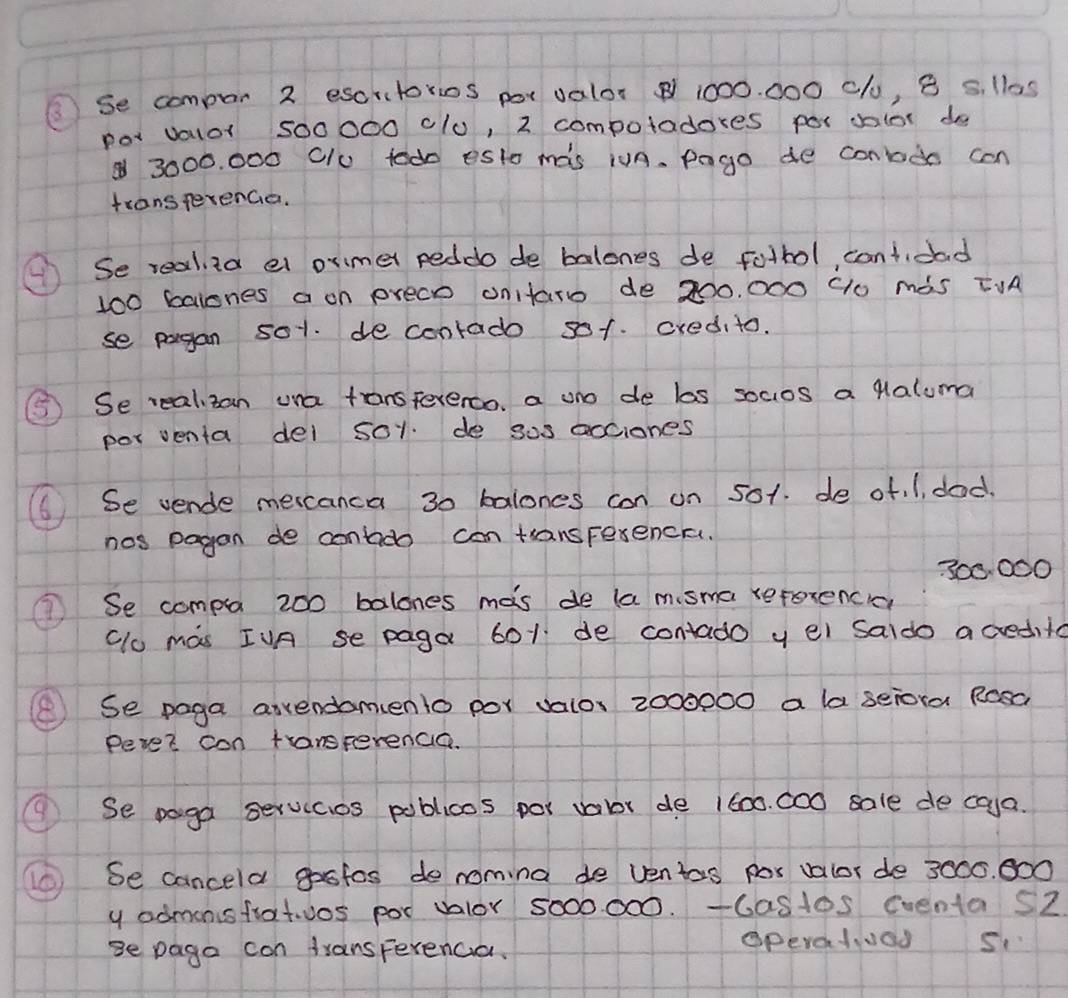 ③ Se compan 2 escritorios por valor 1000.000 c/u, 8 sillas
por valor 500000 c/u, 2 computadores por valor de
3000.000 c/u todo esto más IVA. Pago de contado con
transferencia.
④ Se realiza el primer peddo de balones de futbol, cantidad
100 balones a un preco unitario de 200.000 c/u más IVA
se pagan 50%. de contado 50%. credito.
⑤ Se realizan una transferenca. a uno de los socios a Haluma
por venta del 50%. de sus acciones
⑥ Se vende mercanca 30 balones con un 50%. de utilidad.
nos pagan de contado con transferencia.
300.000
⑦ Se compra 200 balones más de la misma referencia
c/u más IVA se paga 60% de contado y el Saldo a credito
⑧ Se paga arrendamiento por valor 2000000 a la señora Rosa
Perez con transferencia.
⑨ Se paga servicios publicos por valor de 1600.000 sale de caja.
⑩ Se cancela gastos de nomina de ventas por valor de 3000.000
y admnistrativos por valor 5000.000. - Gastos cuenta 52
se paga con transferencia. operativos 51